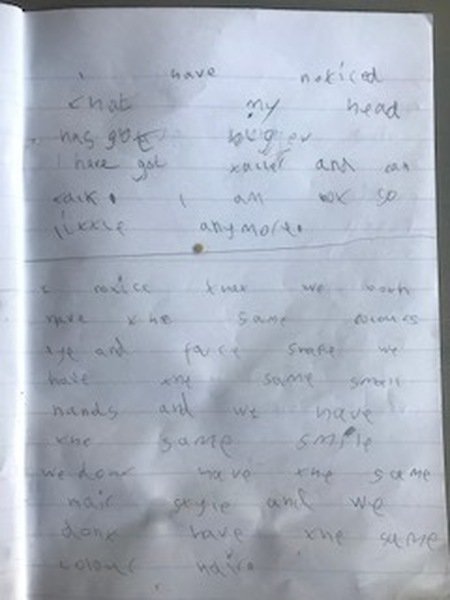 i have noticed
that my head
has got bigger
I have got taller and can
talk. I am not so
little anymore.
I notice that we both
have the same colours
eye and farce shape we
have the same small
hands and we have
the same smile
we dont have the same
hair style and we
dont have the same
colour hair.